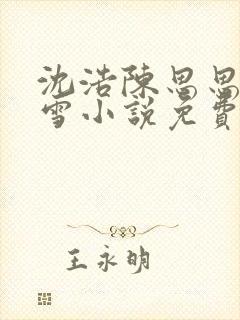 沈浩陳思思
雪小說免費
王永明